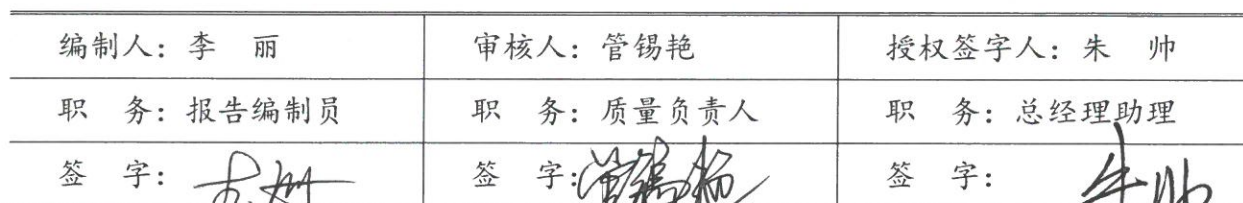 编制人：李　丽	审核人：管锡艳	授权签字人：朱　帅
职　务：报告编制员	职　务：质量负责人	职　务：总经理助理
签　字：	签　字：	签　字：